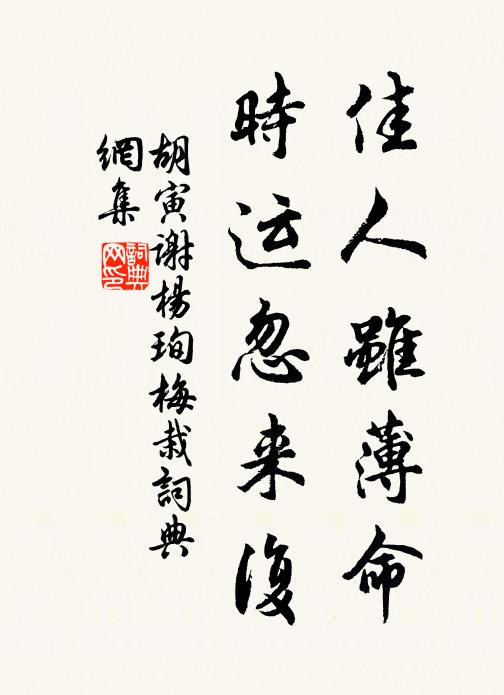 佳人雖薄命
時运忽来復
胡寅谢楊珣梅栽詞典
網集
詞典
网印